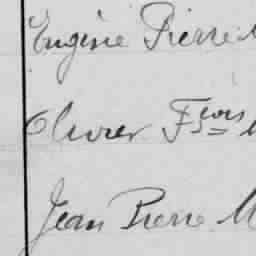 Eugène Pierre M
Olivier Fçois M
Jean Pierre M